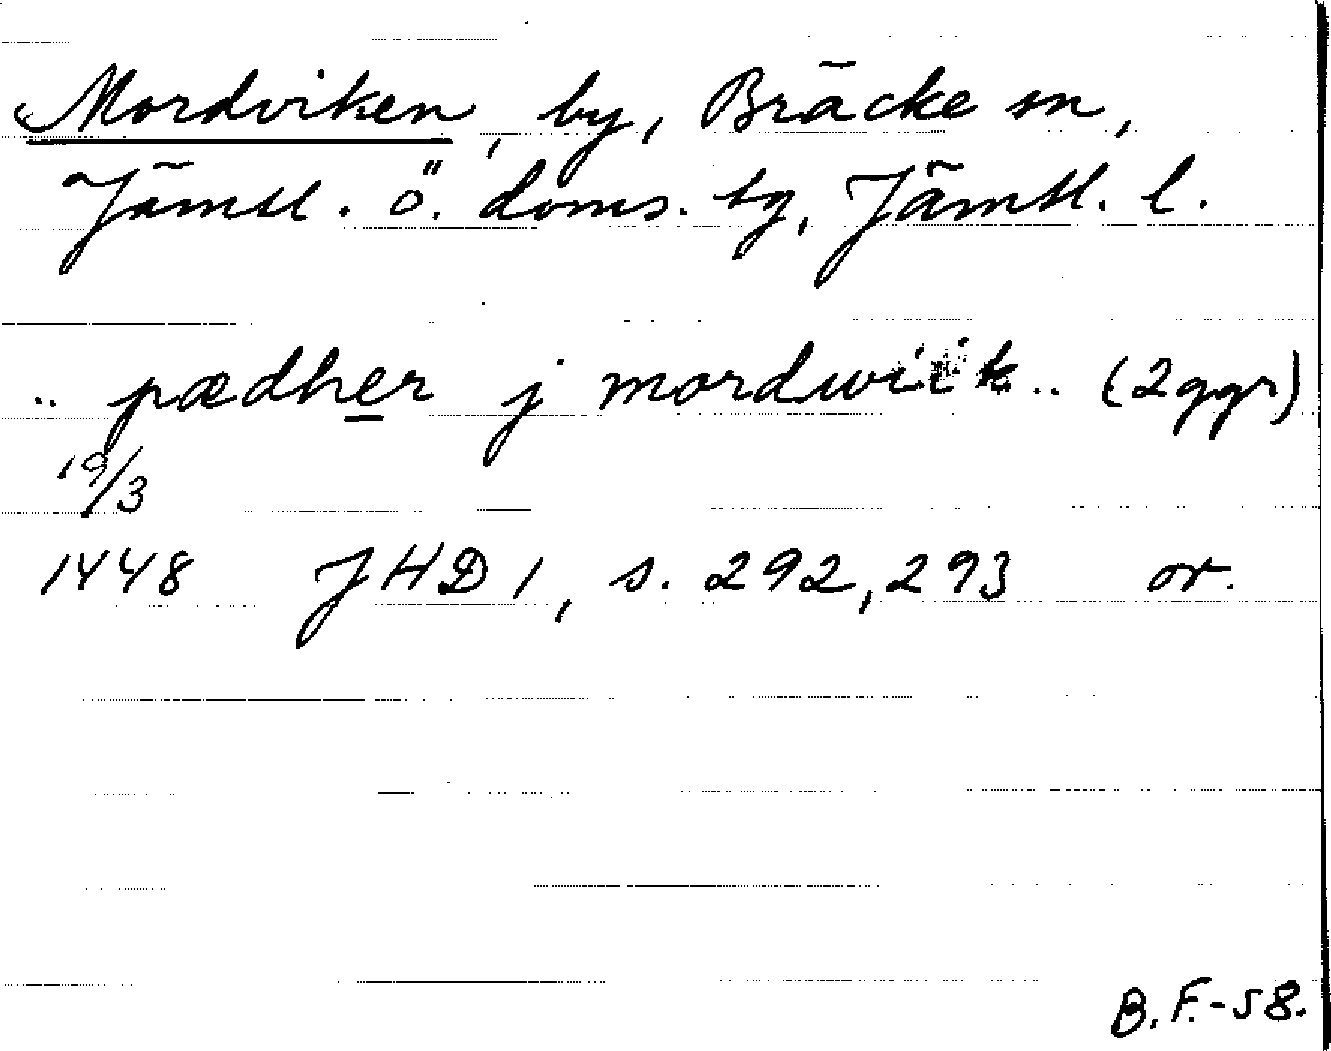 Mordviken, by, Bräcke sn,
Jämtl. ö. doms. tg, Jämtl. l.
.. pædher j mordwiik .. (2ggr)
19/3
1448 JHD 1, s. 292, 293 or.
B.F.-58.